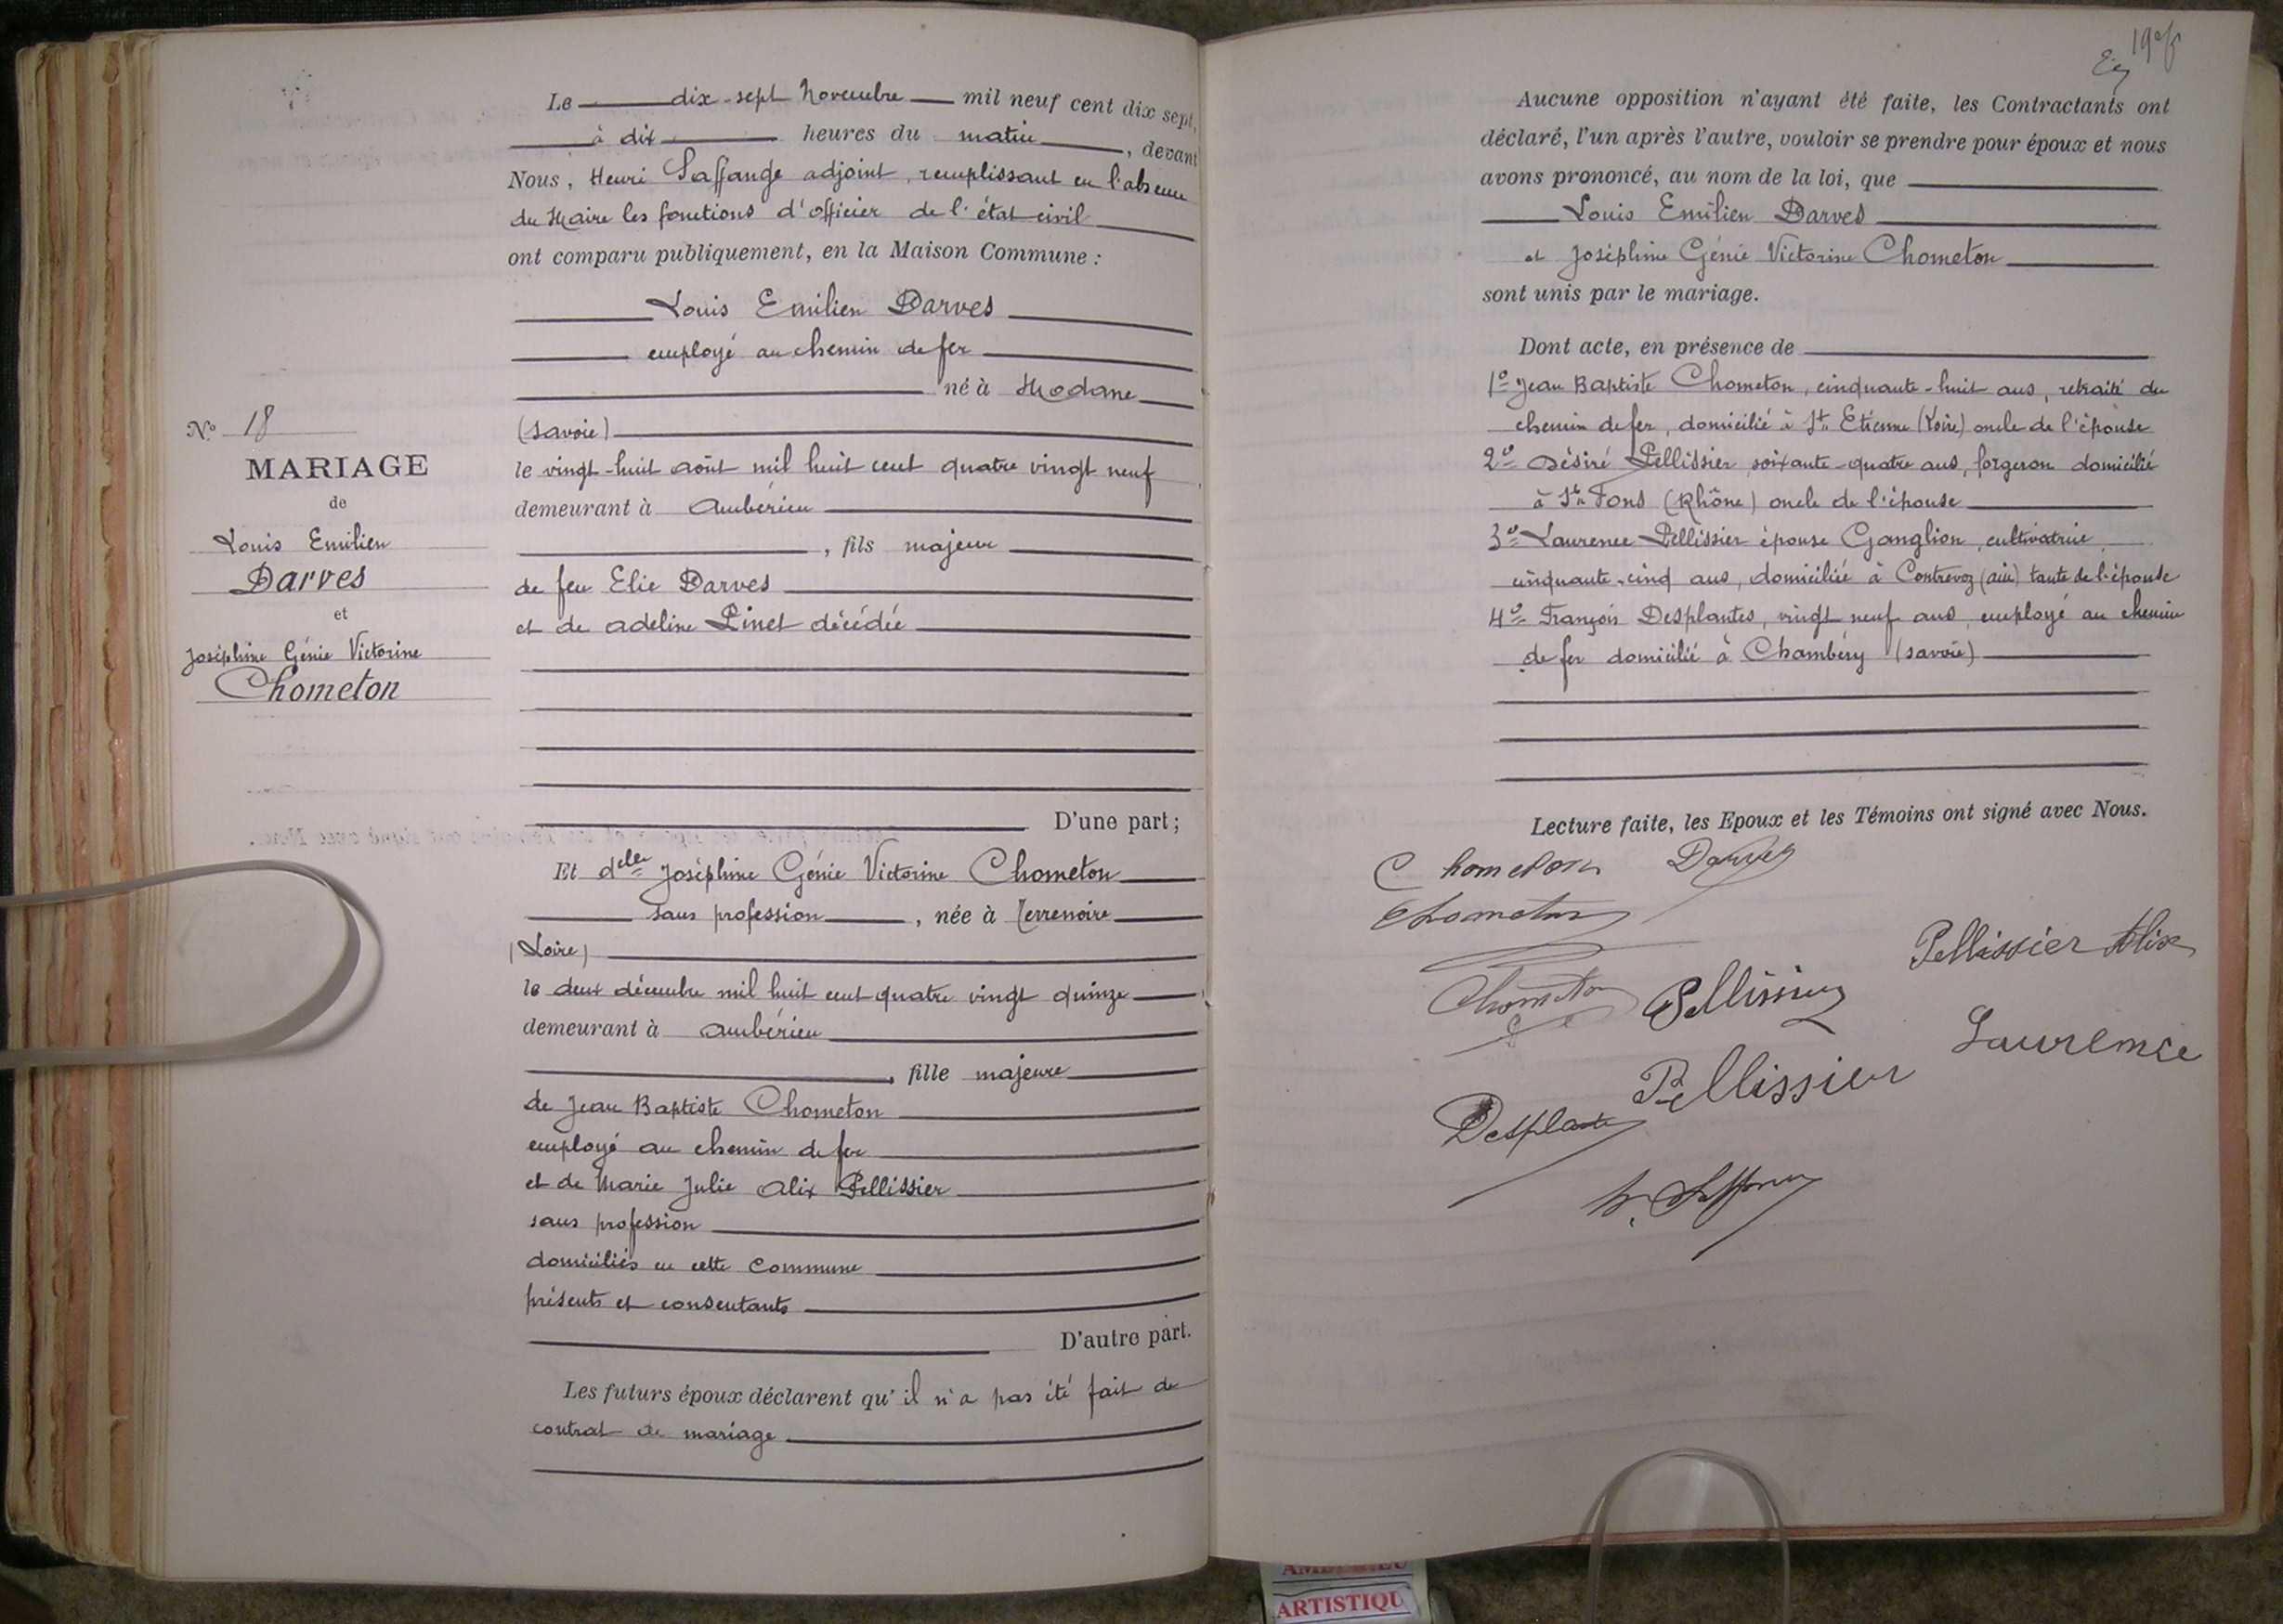 N° 18
MARIAGE
de
Louis Emilien
Darves
et
Joséphine Génie Victorine
Chometon
Le dix-sept Novembre mil neuf cent dix sept,
à dix heures du matin, devant
Nous, Henri Laffange adjoint, remplissant en l'absence
du Maire les fonctions d'officier de l'état civil
ont comparu publiquement, en la Maison Commune :
Louis Emilien Darves
employé au chemin de fer
né à Modane
(Savoie)
le vingt-huit août mil huit cent quatre vingt neuf
demeurant à Ambérieu
, fils majeur
de feu Elie Darves
et de Adeline Pinet décédée
D'une part ;
Et delle Joséphine Génie Victorine Chometon
sans profession, née à Terrenoire
(Loire)
le deux décembre mil huit cent quatre vingt quinze
demeurant à Ambérieu
, fille majeure
de Jean Baptiste Chometon
employé au chemin de fer
et de Marie Julie Alix Pellissier
sans profession
domiciliés en cette commune
présents et consentants
D'autre part.
Les futurs époux déclarent qu'il n'a pas été fait de
contrat de mariage
Aucune opposition n'ayant été faite, les Contractants ont
déclaré, l'un après l'autre, vouloir se prendre pour époux et nous
avons prononcé, au nom de la loi, que
Louis Emilien Darves
et Joséphine Génie Victorine Chometon
sont unis par le mariage.
Dont acte, en présence de
1° Jean Baptiste Chometon, cinquante-huit ans, retraité du
chemin de fer, domicilié à St Etienne (Loire) oncle de l'épouse
2° Désiré Pellissier, soixante-quatre ans, forgeron domicilié
à St Fons (Rhône) oncle de l'épouse
3° Laurence Pellissier épouse Ganglion, cultivatrice,
cinquante-cinq ans, domiciliée à Contrevoz (Ain) tante de l'épouse
4° François Desplantes, vingt neuf ans, employé au chemin
de fer domicilié à Chambéry (Savoie)
Lecture faite, les Epoux et les Témoins ont signé avec Nous.
Chometon Darves
Chometon
Pellissier Alix
Chometon Pellissier
Laurence
Pellissier
Desplante
ARTISTIQU